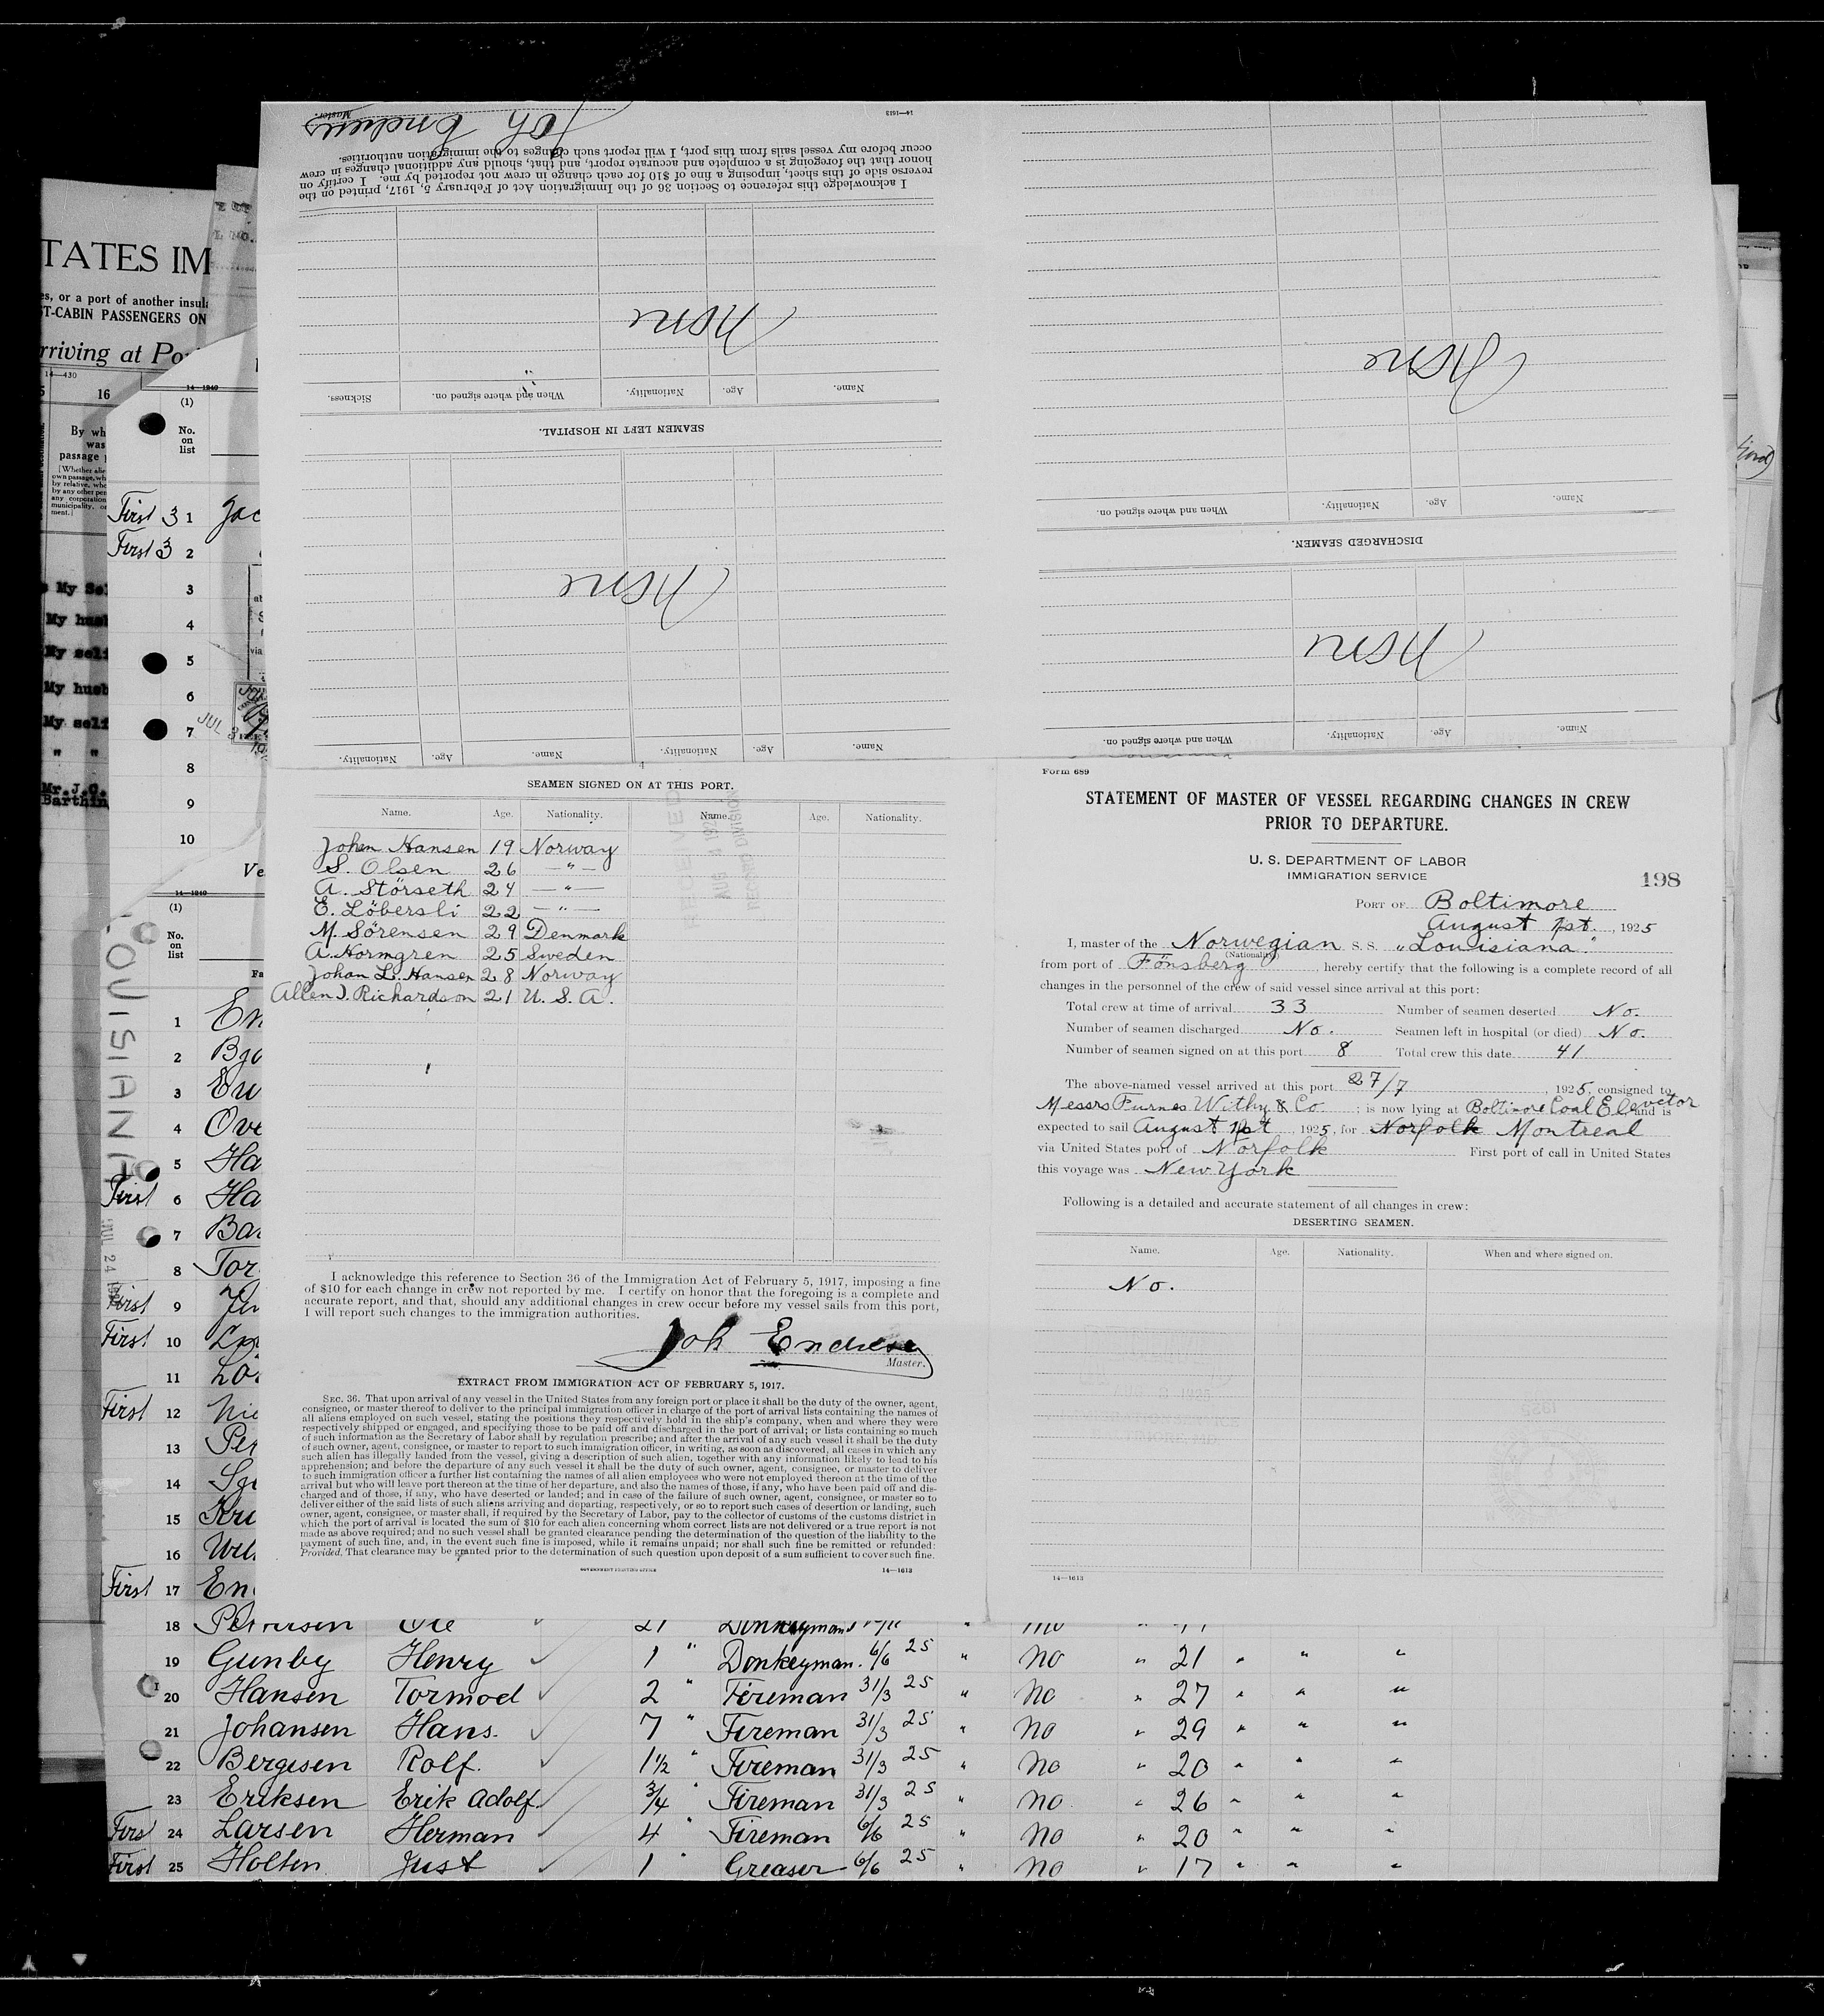 TATES IM
es, or a port of another insula
ST-CABIN PASSENGERS ON
rriving at Po
14—430
16
By wh
was
passage
[Whether alie
own passage, wh
by relative, whe
by any other per
any corporation
municipality, o
ment.]
My Sel
My husb
My self
My husb
My self
" "
Mr.J.C.
Barthin
14—1240
(1)
No.
on
list
First 3 1 Jac
First 3 2
3
4
5
6
7
JUL
8
9
10
Ve
14—1240
(1)
No.
on
list
Fa
LOUISIANA
JUL 24
1 En
2 Bjo
3 Eri
4 Ove
5 Ha
First 6 Ha
7 Bar
8 Tor
First 9
First 10
11
First 12 Nie
13 Per
14
15 Kri
16 Wil
First 17 En
Master.
14—1613
I acknowledge this reference to Section 36 of the Immigration Act of February 5, 1917, printed on the
reverse side of this sheet, imposing a fine of $10 for each change in crew not reported by me. I certify on
honor that the foregoing is a complete and accurate report, and that, should any additional changes in crew
occur before my vessel sails from this port, I will report such changes to the immigration authorities.
Joh Endresen
None
Name. Age. Nationality. When and where signed on. Sickness.
SEAMEN LEFT IN HOSPITAL.
None
Name. Age. Nationality. Name. Age. Nationality.
None
Name. Age. Nationality. When and where signed on.
DISCHARGED SEAMEN.
None
Name. Age. Nationality. When and where signed on.
SEAMEN SIGNED ON AT THIS PORT.
Name. Age. Nationality. Name. Age. Nationality.
Johan Hansen 19 Norway
S. Olsen 26 —"—
A. Störseth 24 —"—
E. Löbersli 22 —"—
M. Sörensen 29 Denmark
A. Hormgren 25 Sweden
Johan L. Hansen 28 Norway
Allen J. Richardson 21 U. S. A.
RECEIVED
RECORD DIVISION
I acknowledge this reference to Section 36 of the Immigration Act of February 5, 1917, imposing a fine
of $10 for each change in crew not reported by me. I certify on honor that the foregoing is a complete and
accurate report, and that, should any additional changes in crew occur before my vessel sails from this port,
I will report such changes to the immigration authorities.
Joh Endresen
Master.
EXTRACT FROM IMMIGRATION ACT OF FEBRUARY 5, 1917.
SEC. 36. That upon arrival of any vessel in the United States from any foreign port or place it shall be the duty of the owner, agent,
consignee, or master thereof to deliver to the principal immigration officer in charge of the port of arrival lists containing the names of
all aliens employed on such vessel, stating the positions they respectively hold in the ship's company, when and where they were
respectively shipped or engaged, and specifying those to be paid off and discharged in the port of arrival; or lists containing so much
of such information as the Secretary of Labor shall by regulation prescribe; and after the arrival of any such vessel it shall be the duty
of such owner, agent, consignee, or master to report to such immigration officer, in writing, as soon as discovered, all cases in which any
such alien has illegally landed from the vessel, giving a description of such alien, together with any information likely to lead to his
apprehension; and before the departure of any such vessel it shall be the duty of such owner, agent, consignee, or master to deliver
to such immigration officer a further list containing the names of all alien employees who were not employed thereon at the time of the
arrival but who will leave port thereon at the time of her departure, and also the names of those, if any, who have been paid off and dis-
charged and of those, if any, who have deserted or landed; and in case of the failure of such owner, agent, consignee, or master so to
deliver either of the said lists of such aliens arriving and departing, respectively, or so to report such cases of desertion or landing, such
owner, agent, consignee, or master shall, if required by the Secretary of Labor, pay to the collector of customs of the customs district in
which the port of arrival is located the sum of $10 for each alien concerning whom correct lists are not delivered or a true report is not
made as above required; and no such vessel shall be granted clearance pending the determination of the question of the liability to the
payment of such fine, and, in the event such fine is imposed, while it remains unpaid; nor shall such fine be remitted or refunded:
Provided, That clearance may be granted prior to the determination of such question upon deposit of a sum sufficient to cover such fine.
GOVERNMENT PRINTING OFFICE 14—1613
Form 689
STATEMENT OF MASTER OF VESSEL REGARDING CHANGES IN CREW
PRIOR TO DEPARTURE.
U. S. DEPARTMENT OF LABOR
IMMIGRATION SERVICE
198
PORT OF Boltimore
August 1st., 1925
I, master of the Norwegian S. S. "Louisiana"
(Nationality)
from port of Fönsberg, hereby certify that the following is a complete record of all
changes in the personnel of the crew of said vessel since arrival at this port:
Total crew at time of arrival 33 Number of seamen deserted No.
Number of seamen discharged No. Seamen left in hospital (or died) No.
Number of seamen signed on at this port 8 Total crew this date 41
The above-named vessel arrived at this port 27/7, 1925, consigned to
Messrs Furnes Withy & Co; is now lying at Boltimore Coal Elevetor and is
expected to sail August 1st, 1925, for Norfolk Montreal
via United States port of Norfolk First port of call in United States
this voyage was New York
Following is a detailed and accurate statement of all changes in crew:
DESERTING SEAMEN.
Name. Age. Nationality. When and where signed on.
No.
14—1613
18 Pettersen Ole 21 Donkeyman
19 Gunby Henry 1 " Donkeyman. 6/6 25 " No " 21 " " "
20 Hansen Tormod 2 " Fireman 31/3 25 " No " 27 " " "
21 Johansen Hans. 7 " Fireman 31/3 25 " No " 29 " " "
22 Bergesen Rolf. 1½ " Fireman 31/3 25 " No " 20 " " "
23 Eriksen Erik Adolf. 3/4 " Fireman 31/3 25 " No " 26 " " "
First 24 Larsen Herman 4 " Fireman 6/6 25 " No " 20 " " "
First 25 Holten Just 1 " Greaser 6/6 25 " No " 17 " " "